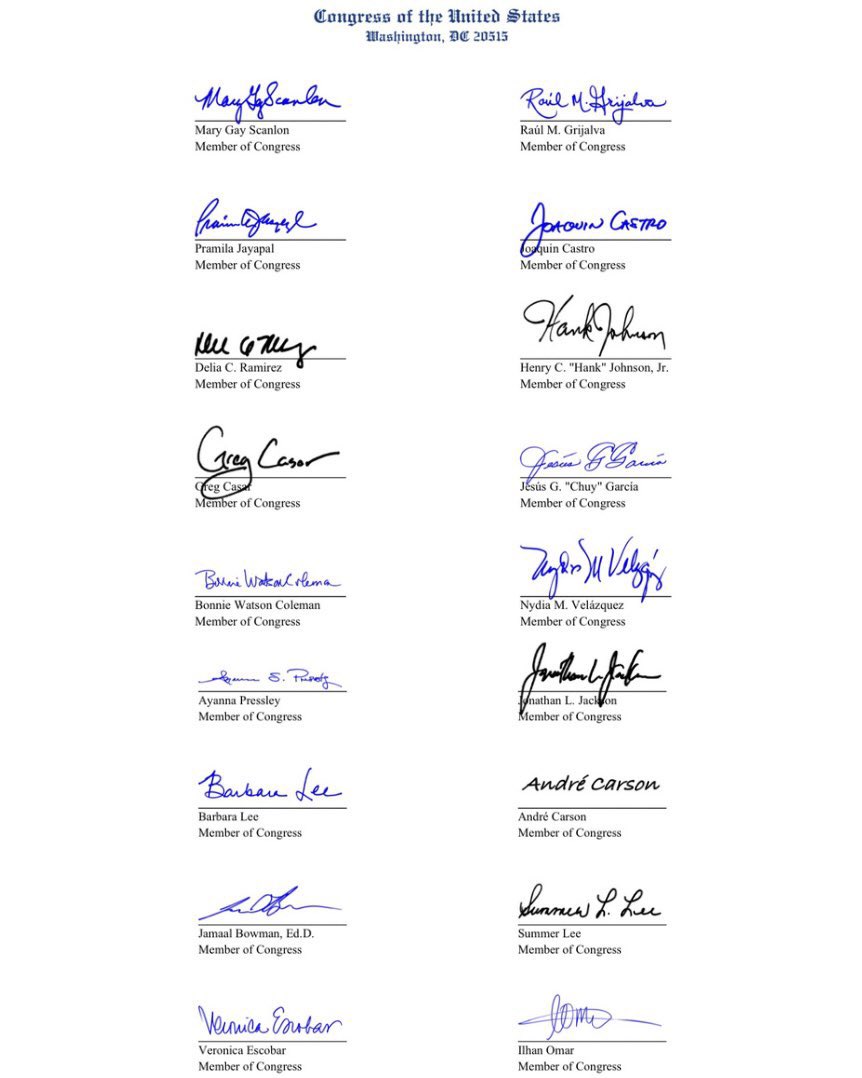 Congress of the United States
Washington, DC 20515
Mary Gay Scanlon
Mary Gay Scanlon
Member of Congress
Raúl M. Grijalva
Raúl M. Grijalva
Member of Congress
Pramila Jayapal
Member of Congress
JOAQUIN CASTRO
Joaquin Castro
Member of Congress
Delia C. Ramirez
Member of Congress
Hank Johnson
Henry C. "Hank" Johnson, Jr.
Member of Congress
Greg Casar
Greg Casar
Member of Congress
Jesús G García
Jesús G. "Chuy" García
Member of Congress
Bonnie Watson Coleman
Bonnie Watson Coleman
Member of Congress
Nydia M Velázquez
Nydia M. Velázquez
Member of Congress
Ayanna Pressley
Member of Congress
Jonathan L. Jackson
Jonathan L. Jackson
Member of Congress
Barbara Lee
Barbara Lee
Member of Congress
André Carson
André Carson
Member of Congress
Jamaal Bowman, Ed.D.
Member of Congress
Summer L. Lee
Summer Lee
Member of Congress
Veronica Escobar
Veronica Escobar
Member of Congress
Ilhan Omar
Member of Congress